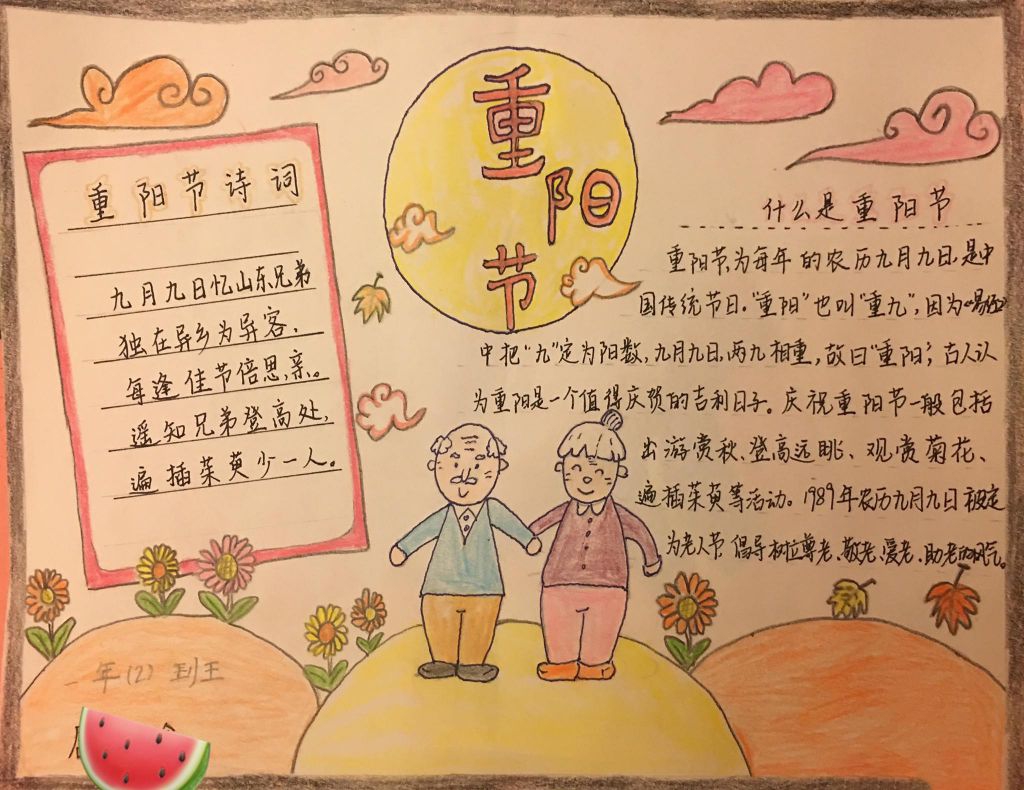 重阳节
重阳节诗词
九月九日忆山东兄弟
独在异乡为异客,
每逢佳节倍思亲。
遥知兄弟登高处,
遍插茱萸少一人。
什么是重阳节
重阳节,为每年的农历九月九日,是中
国传统节日。"重阳"也叫"重九",因为《易经》
中把"九"定为阳数,九月九日,两九相重,故曰"重阳";古人认
为重阳是一个值得庆贺的吉利日子。庆祝重阳节一般包括
出游赏秋、登高远眺、观赏菊花、
遍插茱萸等活动。1989年农历九月九日被定
为老人节,倡导树立尊老、敬老、爱老、助老的风气。
一年(2)班